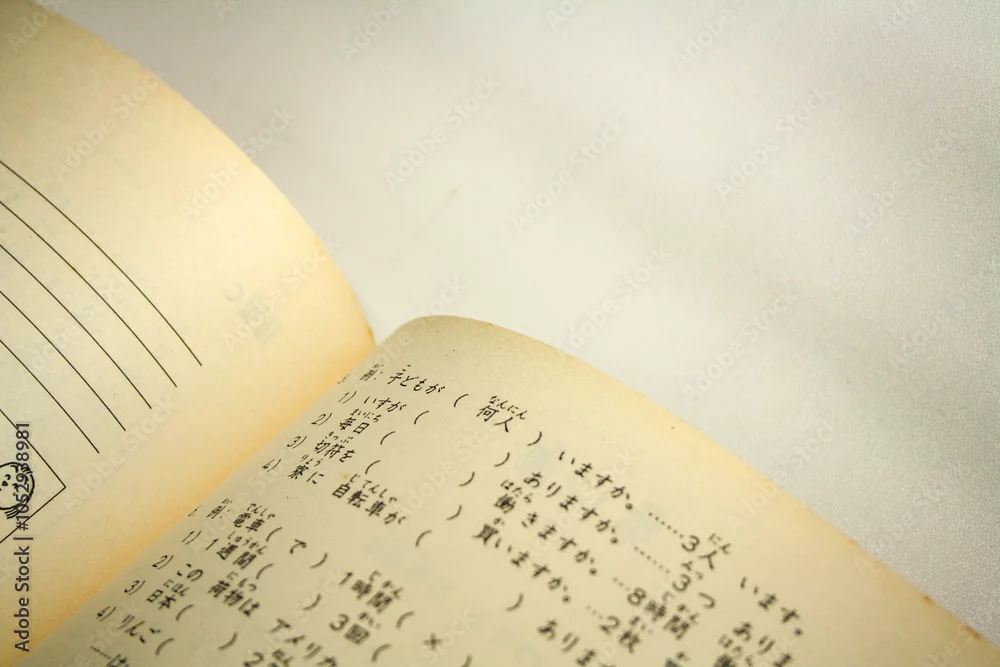 例: 子どもが ( 何人 ) いますか。……3人 います。
1) いすが ( ) ありますか。……3つ あり
2) 毎日 ( ) 働きますか。…8時間
3) 切符を ( ) 買いますか。…2枚
4) 寮に 自転車が ( ) ありま
例: 電車( で ) 1時間( ×
1) 1週間( ) 3回(
2) この 荷物は アメリカ
3) 日本( ) 2
4) りんご(
……は
Adobe Stock | 1052938981